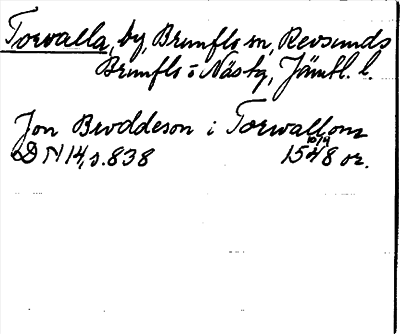 Torvalla, by, Brunflo sn, Revsunds
Brunflo o Näs tg, Jämtl. l.
Jon Broddeson i Torvallom
DN 14, s. 838 15 10/4 48 or.